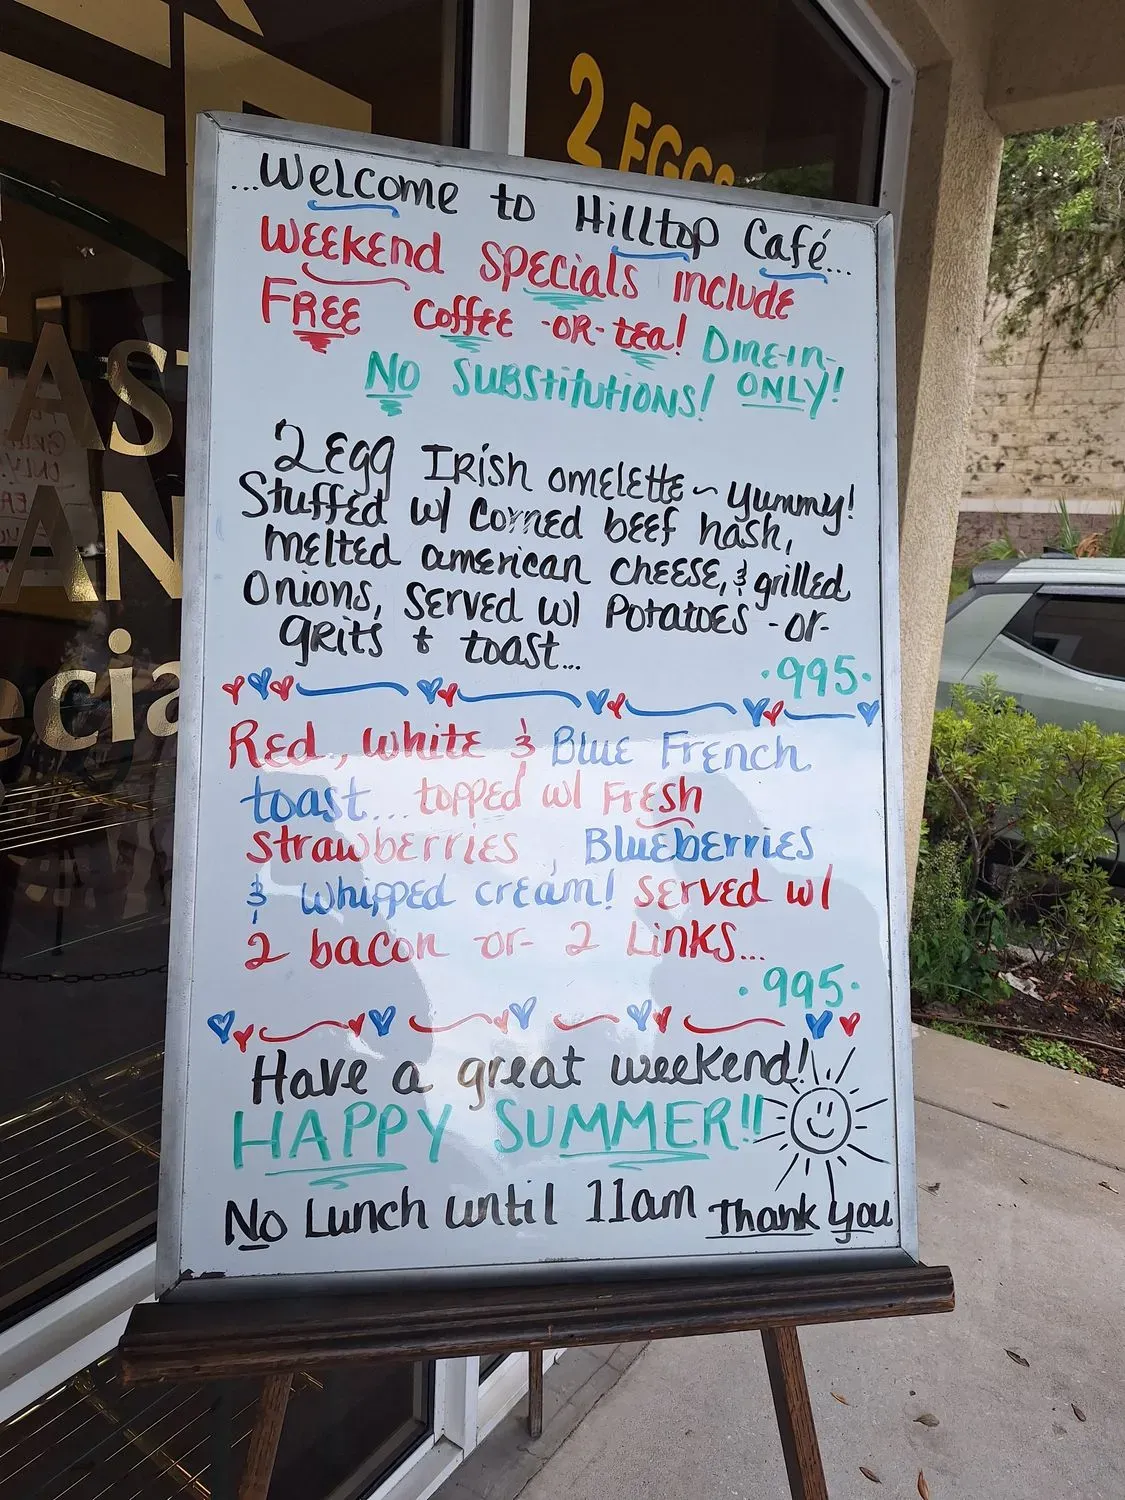 2 EGGS
...Welcome to Hilltop Café...
WEEKEND SPECIALS INCLUDE
FREE COFFEE -OR- tea! DINE-IN-
NO SUBSTITUTIONS! ONLY!
2 Egg IRISH omelette ~ Yummy!
Stuffed w/ corned beef hash,
melted american cheese, & grilled
onions, served w/ Potatoes -or-
grits & toast...
·995·
Red, white & Blue French
toast... topped w/ Fresh
strawberries, Blueberries
& whipped cream! served w/
2 bacon -or- 2 Links...
·995·
Have a great weekend!
HAPPY SUMMER!!
No Lunch until 11am Thank you
AST
AN
ecia